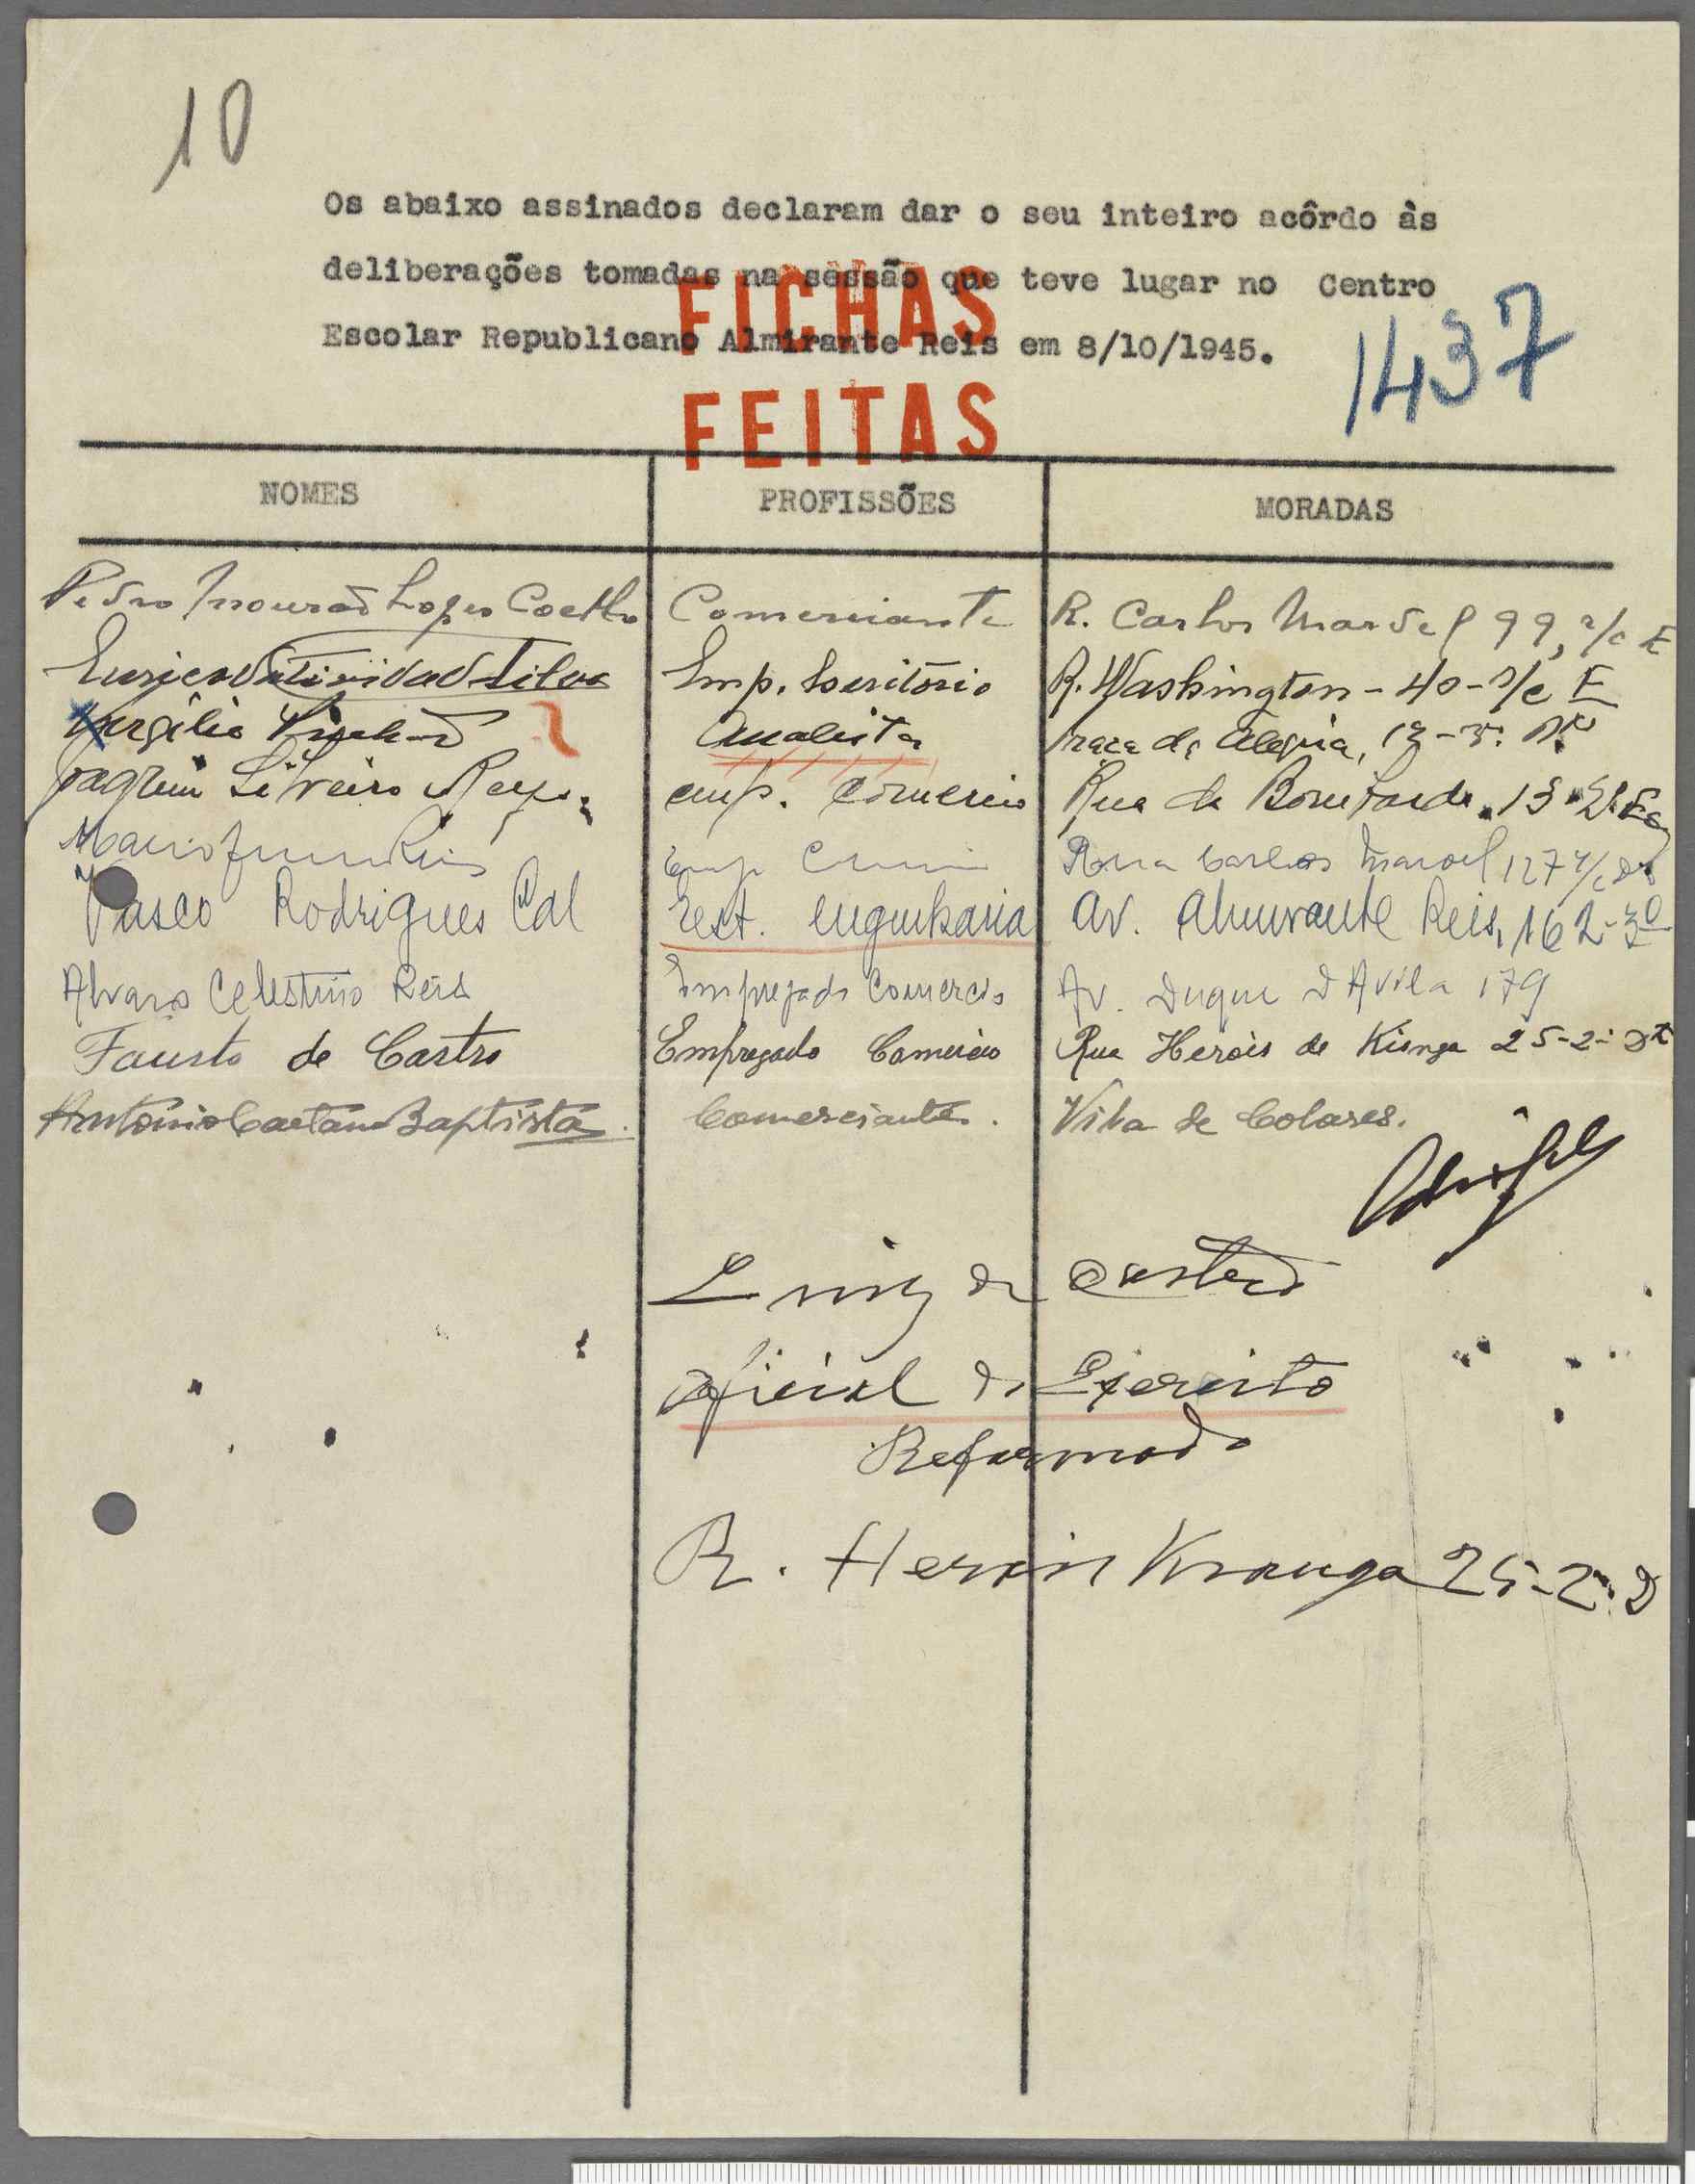 10
Os abaixo assinados declaram dar o seu inteiro acôrdo às
deliberações tomadas na sessão que teve lugar no Centro
Escolar Republicano Almirante Reis em 8/10/1945.
FICHAS
FEITAS
1437
NOMES PROFISSÕES MORADAS
Pedro Mourão Lopes Coelho Comerciante R. Carlos Mardel 99, r/c E
Eurico Silva Emp. Escritório R. Washington - 40 - r/c E
Virgilio Analista Praça da Alegria, 12-3º
Joaquim Silveiro emp. Comercio Rua da Bombarda 13
Mario Reis Emp Rua Carlos Mardel 127 r/c
Vasco Rodrigues Cal Est. engenharia Av. Almirante Reis, 162-3º
Alvaro Celestino Reis Empregado Comercio Av. Duque D'Avila 179
Fausto de Castro Empregado Comercio Rua Herois de Kionga 25-2º Dt
Antonio Caetano Baptista. Comerciante. Vila de Colares.
Luiz de Castro
Oficial do Exercito
Reformado
R. Herois Kionga 25-2º D